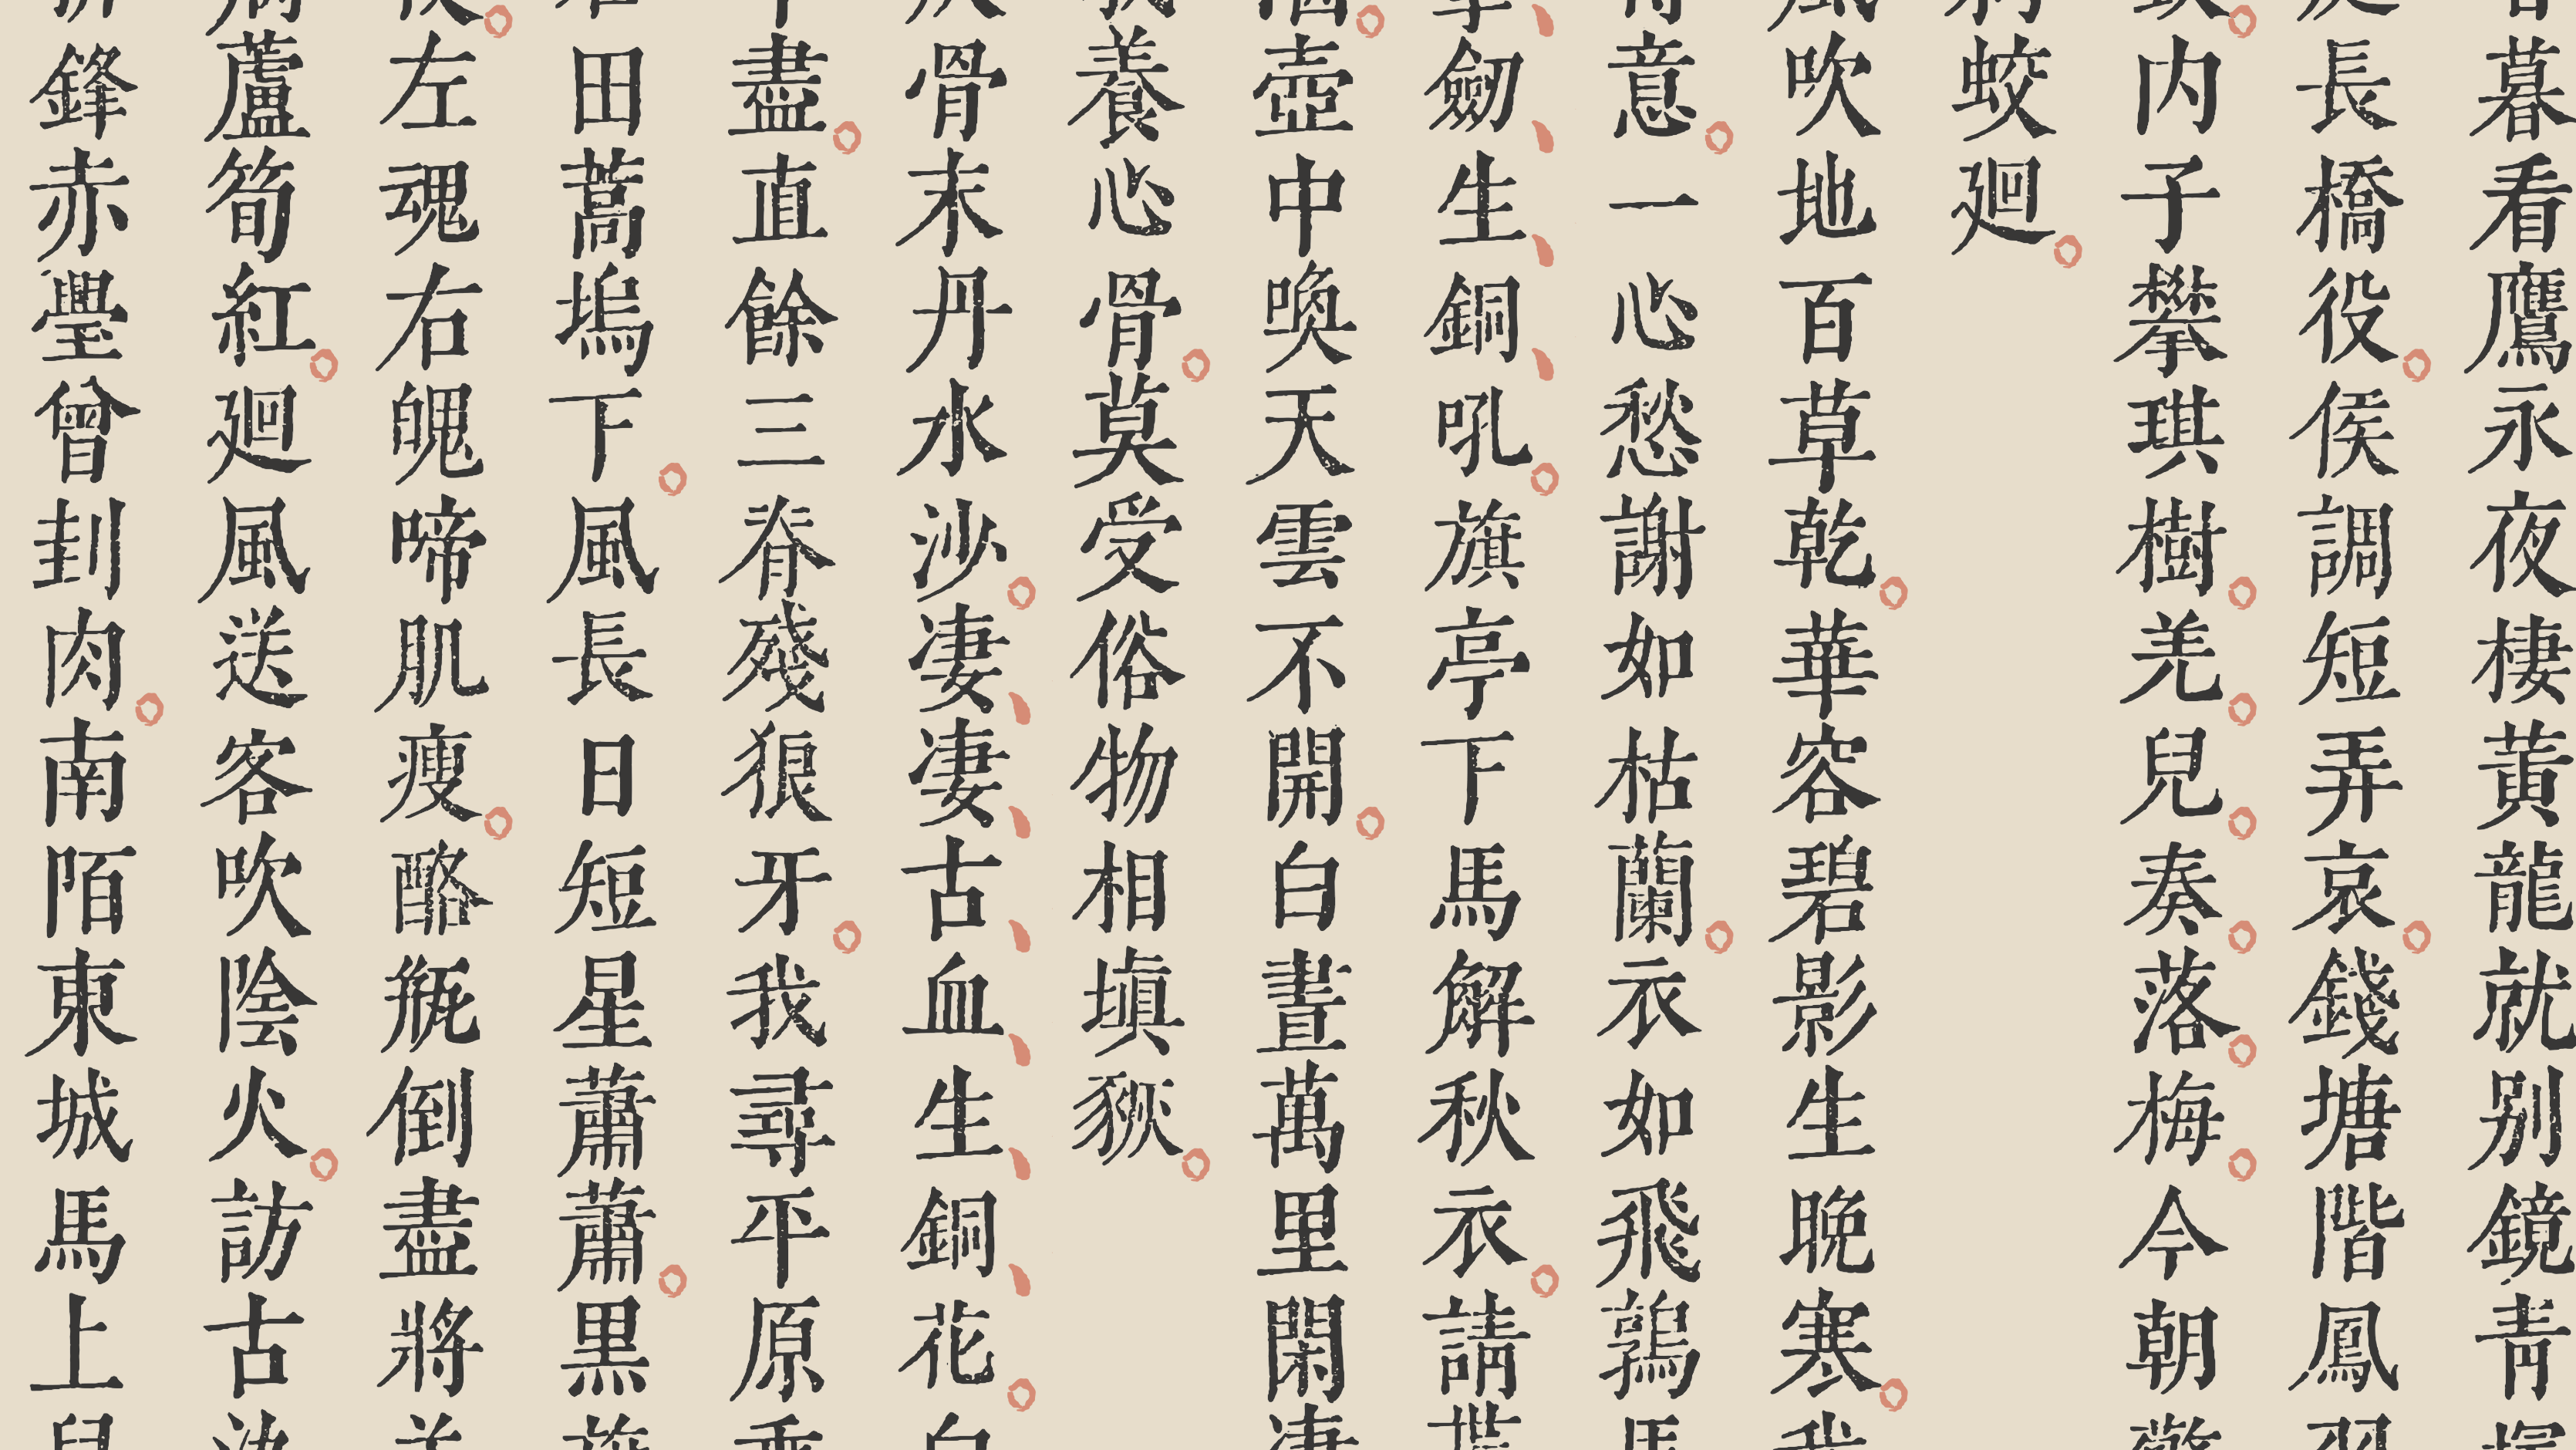 暮看鷹永夜棲黃龍就别鏡青
長橋役侯調短弄哀錢塘階鳳
内子攀琪樹羌兒奏落梅今朝
蛟廻
吹地百草乾華容碧影生晚寒
意一心愁謝如枯蘭衣如飛鶉
劒生銅吼旗亭下馬解秋衣請
壺中喚天雲不開白晝萬里閑
養心骨莫受俗物相填豗
骨末丹水沙凄凄古血生銅花
盡直餘三脊殘狼牙我尋平原
田蒿塢下風長日短星蕭蕭黑
左魂右魄啼肌瘦酪瓶倒盡將
蘆筍紅廻風送客吹陰火訪古
鋒赤璺曾刲肉南陌東城馬上